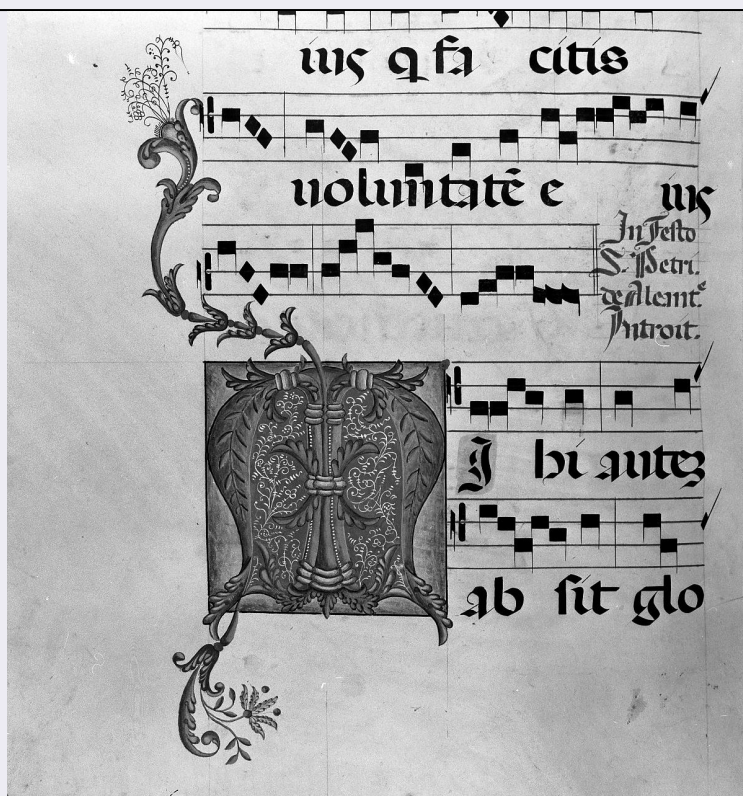 iuς q fa citis
uoluntatē e iuς
In Festo
S. Petri.
de Alcant.ᵉ
Introit.
M I hi auteʒ
ab sit glo